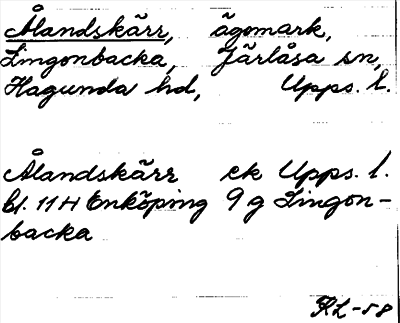 Ålandskärr, ägomark,
Lingonbacka, Järlåsa sn,
Hagunda hd, Upps. l.
Ålandskärr ek Upps. l.
bl. 11H Enköping 9g Lingon-
backa
RL-58